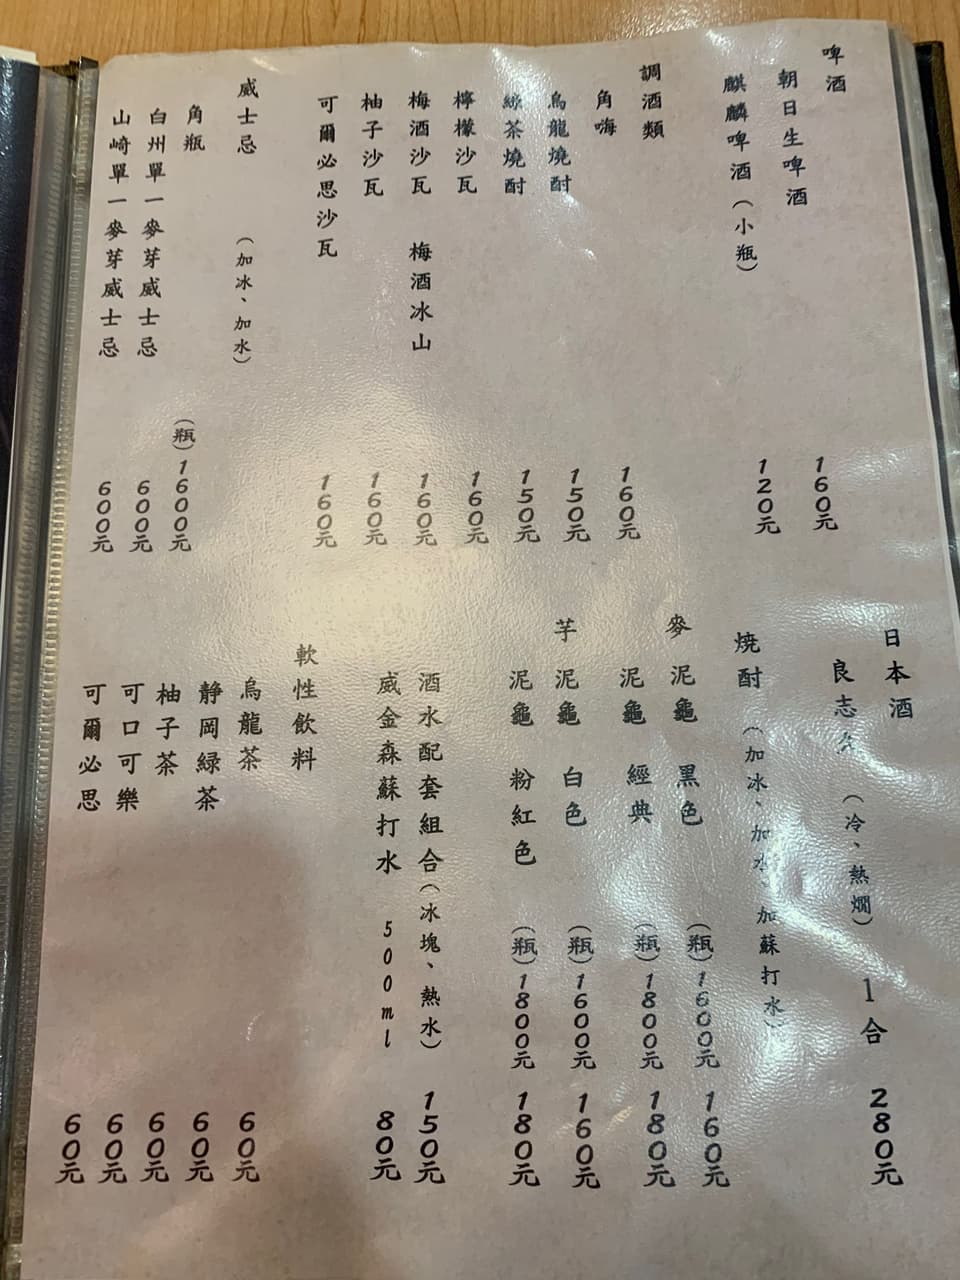 啤酒
朝日生啤酒 160元
麒麟啤酒(小瓶) 120元
調酒類
角嗨 160元
烏龍燒酎 150元
綠茶燒酎 150元
檸檬沙瓦 160元
梅酒沙瓦 梅酒冰山 160元
柚子沙瓦 160元
可爾必思沙瓦 160元
威士忌 (加冰、加水)
角瓶 (瓶)1600元
白州單一麥芽威士忌 600元
山崎單一麥芽威士忌 600元
日本酒
良志久 (冷、熱燗) 1合 280元
燒酎 (加冰、加水、加蘇打水)
麥 泥龜 黑色 (瓶)1600元 160元
泥龜 經典 (瓶)1800元 180元
芋 泥龜 白色 (瓶)1600元 160元
泥龜 粉紅色 (瓶)1800元 180元
酒水配套組合(冰塊、熱水) 150元
威金森蘇打水 500ml 80元
軟性飲料
烏龍茶 60元
静岡緑茶 60元
柚子茶 60元
可口可樂 60元
可爾必思 60元